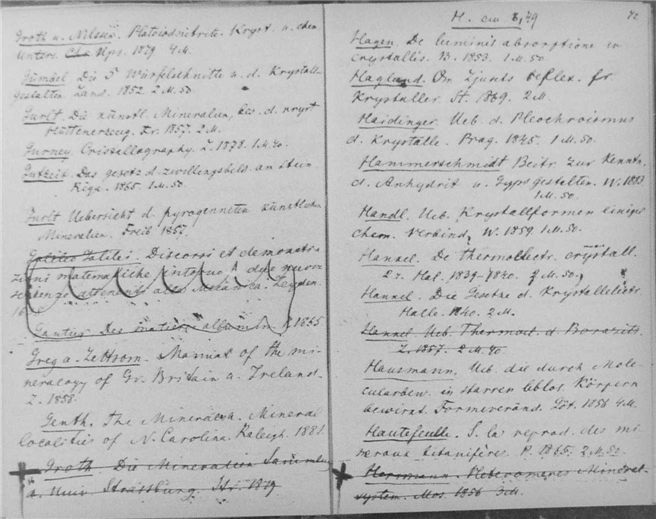 Groth u. Nilson. Platojodnitrite. Kryst. u. chem.
Unters. Ups. 1879 4.M.
Gümbel Die 5 Würfelschnitte u. d. Krystall-
gestalten Lands. 1852. 2.M.50.
Gurlt. Die künstl. Mineralien, bes. d. kryst.
Hüttenerzeug. Fr. 1857. 2.M.
Gurney. Cristallography. L. 1878. 1.M.40.
Gutzeit. Das gesetz d. zwillingsbild. an Stein
Riga. 1865. 1.M.50.
Gurlt Uebersicht d. pyrogenneten künstlichen
Mineralien. Freib 1857.
Galileo Galilei Discorsi et demonstra-
zioni matematiche intorno a due nuove
scienze attenenti alla Mecanica. Leyden.
16
Gautier Des matières albumin. P. 1865
Greg a. Lettsom. Manual of the mi-
neralogy of Gr. Britain a. Ireland.
L. 1858.
Genth. The Minerals a. Mineral
localities of N. Carolina. Raleigh. 1881.
Groth. Die Mineralien Samml.
d. Univ Strassburg. Str. 1879
H. 72
Hagen. De luminis absorptione in
crystallis. B. 1853. 1.M.50.
Haglund. Om Ljusets reflex. fr.
Krystaller. St. 1869. 2.M.
Haidinger. Ueb. d. Pleochroismus
d. Krystalle. Prag. 1845. 1.M.50.
Hammerschmidt Beitr. zur Kenntn.
d. Anhydrit u. Gyps gestalten. W. 1883
1.M.50.
Handl. Ueb. Krystallformen einiger
chem. Verbind. W. 1859. 1.M.50.
Hankel. De thermoelectr. crystall.
2 v. Hal. 1839-1840. M.50.
Hankel. Die Gesetze d. Krystallelectr.
Halle. 1840. 2.M.
Hankel Ueb Thermoel. d Boracits.
L. 1857. 2.M.40.
Hausmann. Ueb. die durch Mole-
cularbew. in starren leblos. Körpern
bewirkt. Formveränd. Göt. 1856 4.M.
Hautefeuille. S. la reprod. des mi-
néraux titanifère. P. 1865. 2.M.50.
Herrmann. Heteromeres Mineral-
system. Mos. 1856 3.M.